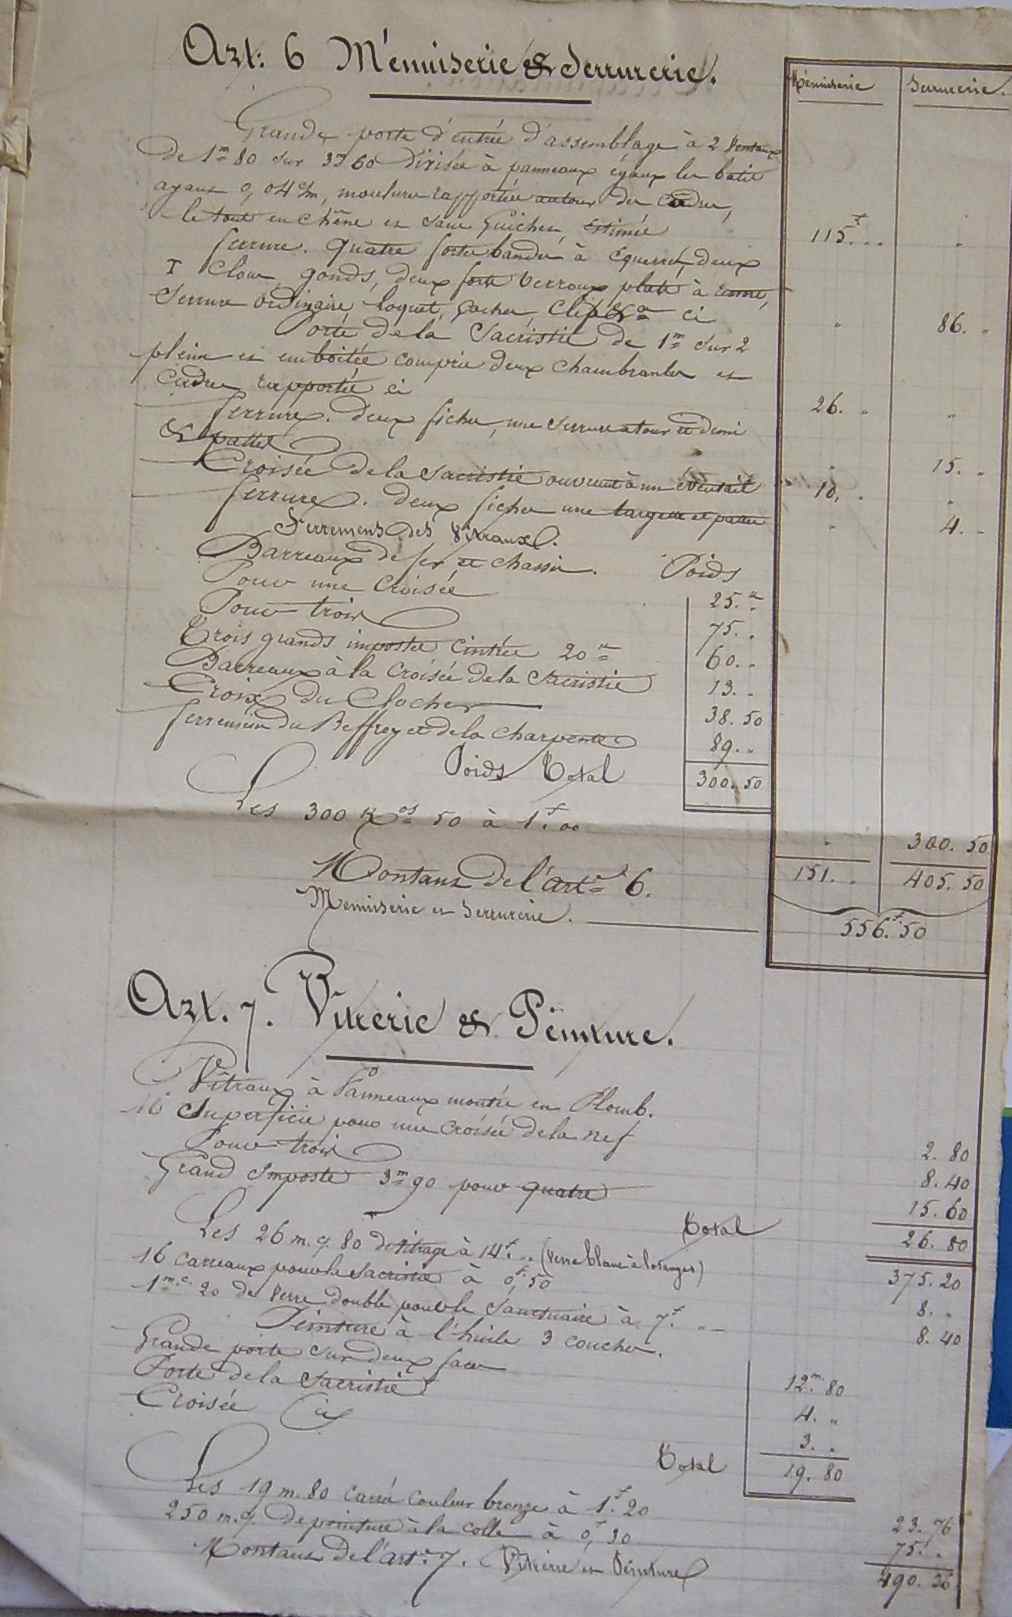 Art: 6 Ménuiserie & Serrurerie.
Ménuiserie Serrurerie.
Grande porte d'entrée d'assemblage à 2 Ventaux
de 1m 80 sur 3m 60 divisée à panneaux égaux les batis
ayant 0,04 c/m, moulures rapportées autour du cadre,
le tout en chêne et sans Guichet, Estimée 115f..
ferrure. Quatre fortes bandes à Equerres, deux
T Clous, gonds, deux forts verroux plats à
Serrure ordinaire, loquet, Clef &a ci " 86. "
Porte de la Sacristie de 1m sur 2
pleine et emboîtée compris deux chambranles et
Cadre rapporté ci 26. " "
ferrure. deux fiches, une serrure a tour et demi
& pattes " 15. "
Croisée de la Sacristie ouvrant à un 10. " "
ferrure. deux fiches une targette et pattes " 4. "
Ferremens des Vitraux.
Barreaux de fer et chassis. Poids
Pour une Croisée 25. "
Pour trois 75. "
Trois grands impostes cintrées 20 " 60. "
Barreaux à la Croisée de la Sacristie 13. "
Croix du Clocher 38. 50
ferremens du Beffroy et de la charpente 89. "
Poids Total 300. 50
Les 300 Kos 50 à 1f. 00 " 300. 50
Montant de l'art. 6. 151. " 405. 50
Menuiserie et Serrurerie. 556f. 50
Art. 7. Vitrerie & Peinture.
Vitraux à Panneaux montés en Plomb.
Superficie pour une croisée de la nef 2. 80
Pour trois 8. 40
Grand Imposte 3m 90 pour quatre 15. 60
Total 26. 80
Les 26 m. q. 80 de vitrage à 14f. " (verre blanc à losanges) 375. 20
16 carreaux pour la Sacristie à 0f. 50 8. "
1m.c. 20 de verre double pour le Sanctuaire à 7f. " 8. 40
Peinture à l'huile 3 couches.
Grande porte sur deux faces 12m. 80
Porte de la Sacristie 4. "
Croisée 3. "
Total 19. 80
Les 19 m. 80 carré couleur bronze à 1f. 20 23. 76
250 m. q. de peinture à la colle à 0f, 30 75. "
Montant de l'art. 7. Vitrerie et Peinture 490. 36